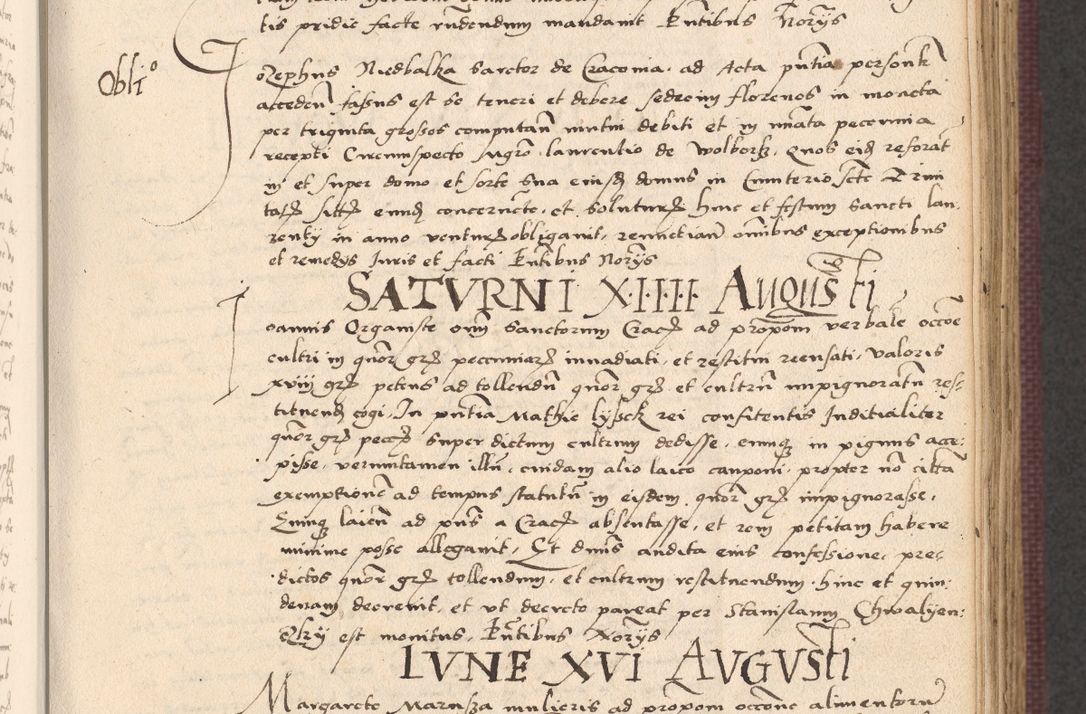 tis pridie facte rndendum mandavit Pntibus Norys
Obli°
Jozephus Niedbalka Sarctor de Cracovia, ad Acta pntia personlr
acceden fassus est se teneri et debere sedecim florenos in moneta
per triginta grossos computan mutui debiti et in nnata pecunnia
recepti Circumspecto mgro Laurentio de Wolborz, Quos eid reforat
in et super domo et sorte sua eiusd domus in Cimiterio scte Trini
tatis sittis eund concernete, et solutur hinc et festum Sancti Lau
renty in anno ventur obligavit, renuctian omibus exceptionibus
et remedys Juris et facti Pntibus Norys
SATVRNI X·I·I·I·I AUGUSTI
Joannis Organiste omi Sanctorum Crac ad propom verbale occoe
cultri in quor gr pecuniar invadiati, et restitui recusati, valoris
xviii gr petens ad tollendu quor gr et cultru impignoratu res
tituend cogi, In pntia Mathie lyssek rei confitentis Inditialiter
quor gr pecc super dictum cultrum dedisse, eumq in pignus acce
pisse, veruntamen illu, cuidam alio laico cauponi, propter no citta
exemptione ad tempus statutu in eisdem, quor gr impignorasse,
Eumq laicu ad pns a Crac absentasse, et rem petitam habere
minime posse allegavit, Et dnus audita eius confessione, pre
dictos quor gr tollendum, et cultrum restituendum hinc et quin
denam decrevit, et ut decreto pareat per Stanislaum Chwalyen
Qlzy est monitus, Pntibus Norys
LUNE XVI AUGUSTI
Margarete Marussa mulieris ad propom occone alimentoru